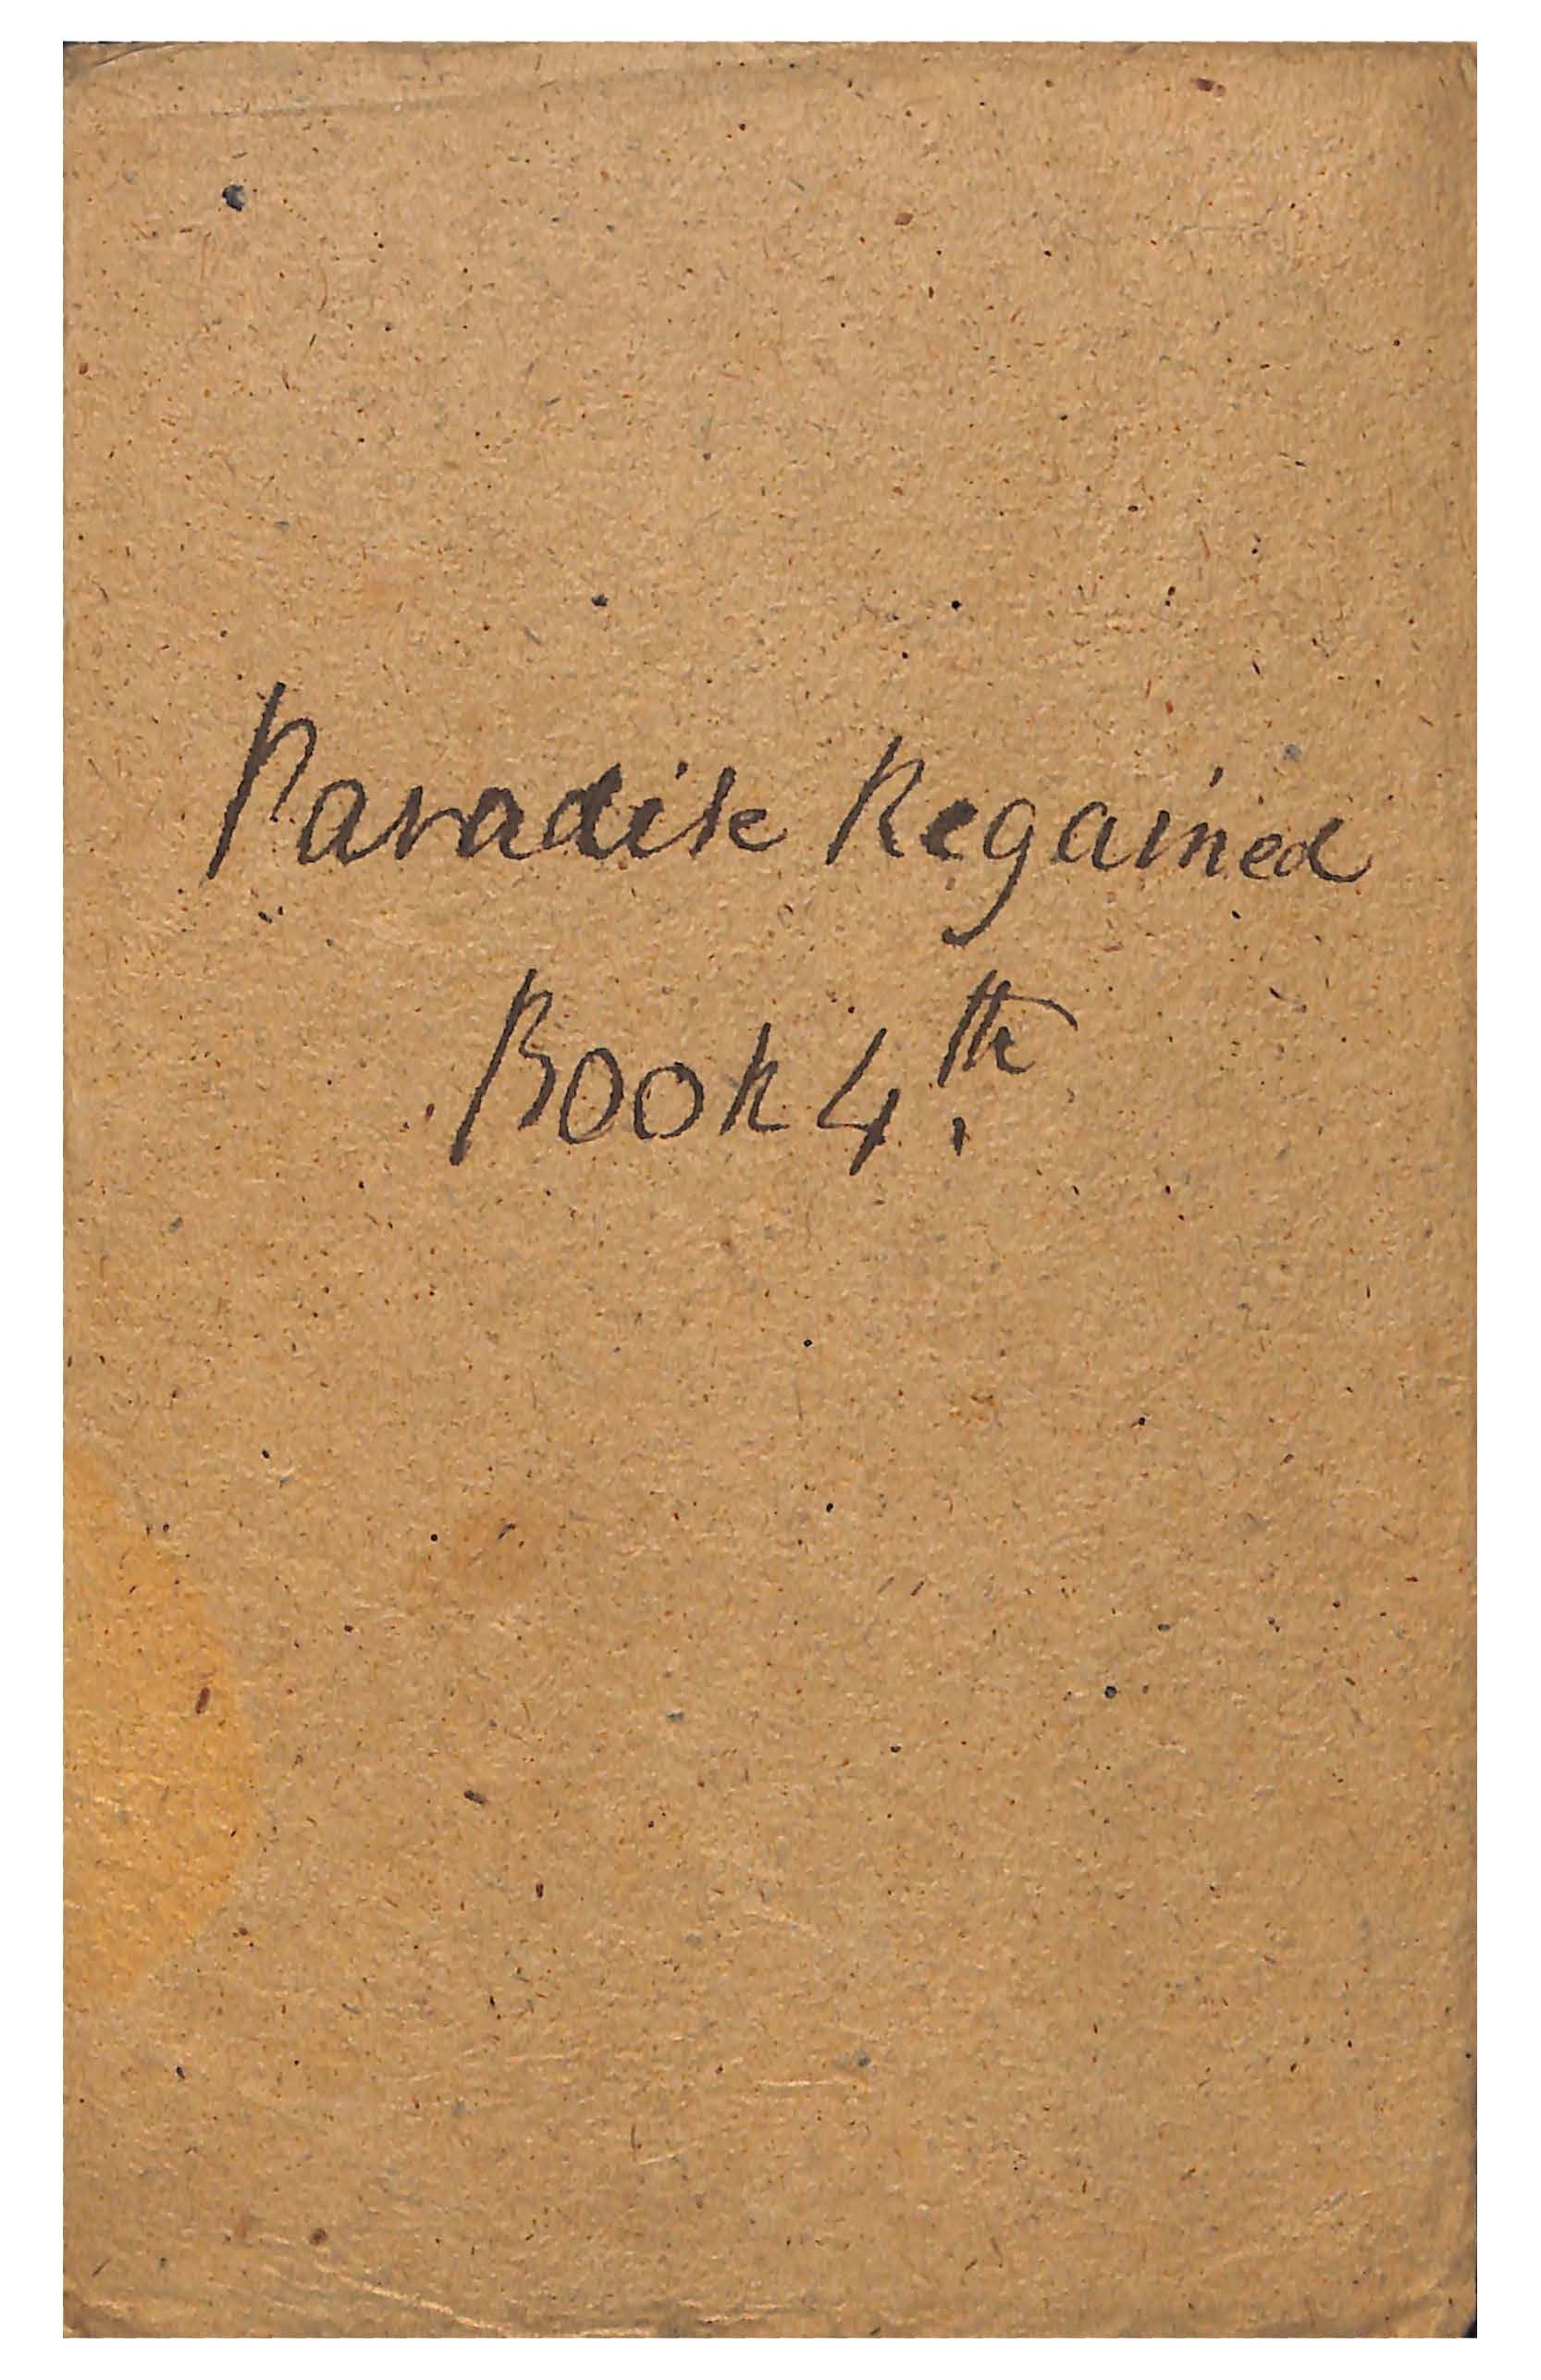 Paradise Regained
Book 4th.